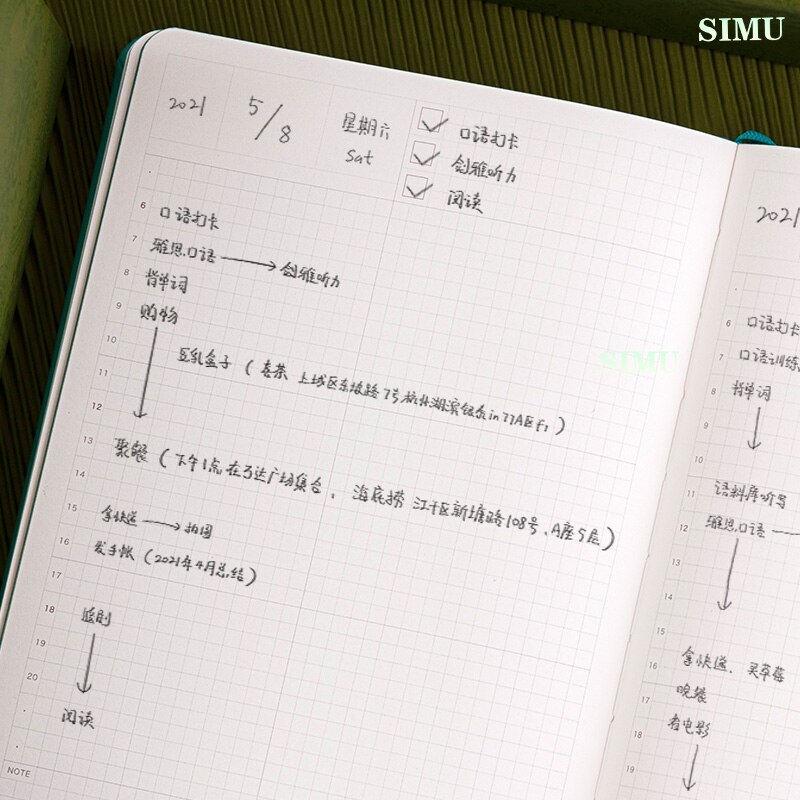 SIMU
2021 5/8 星期六 Sat
☑ 口语打卡
☑ 剑雅听力
☑ 阅读
6 口语打卡
7 雅思口语 → 剑雅听力
8 背单词
9 购物
10 豆乳盒子（喜茶 上城区东坡路7号杭州湖滨银泰in77A区F1）
11
12
13 聚餐（下午1点在万达广场集合，海底捞 江干区新塘路108号，A座5层）
14
15 拿快递 → 拍图
16 发手帐（2021年4月总结）
17
18
19
20
阅读
NOTE
SIMU
2021
6 口语打卡
7 口语训练
8 背单词
9
10
11 语料库听写
12 雅思口语
13
14
15
16 拿快递、买草莓
17 晚餐
18 看电影
19